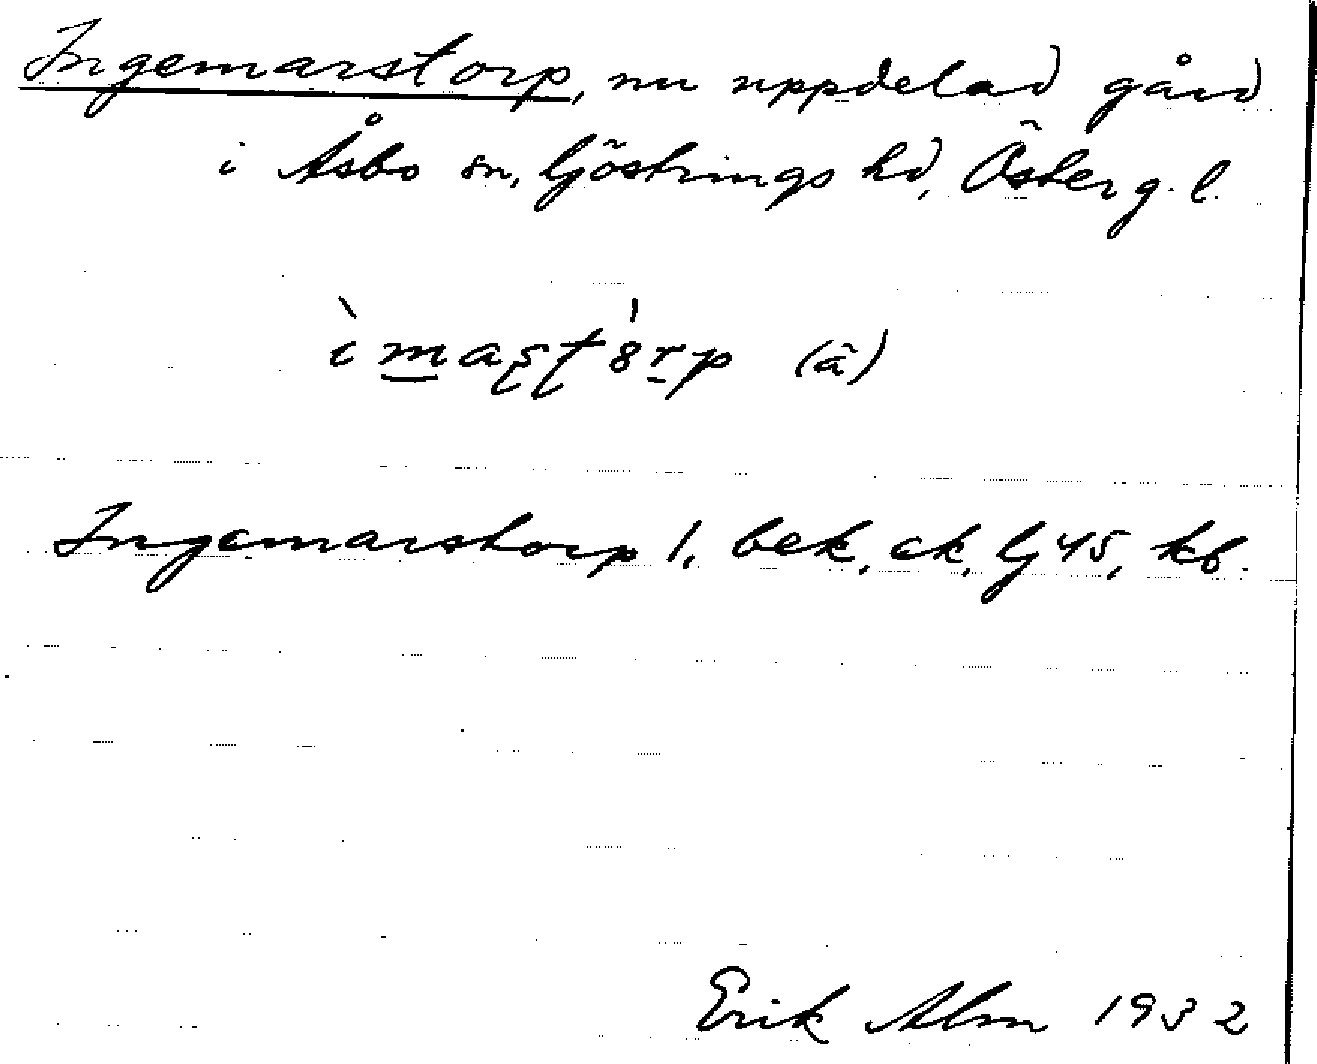 Ingemarstorp, nu uppdelad gård
i Åsbo sn, Göstrings hd, Österg. l.
(â)
Ingemarstorp 1, bek, ek, lj 45, kb.
Erik Alm 1932